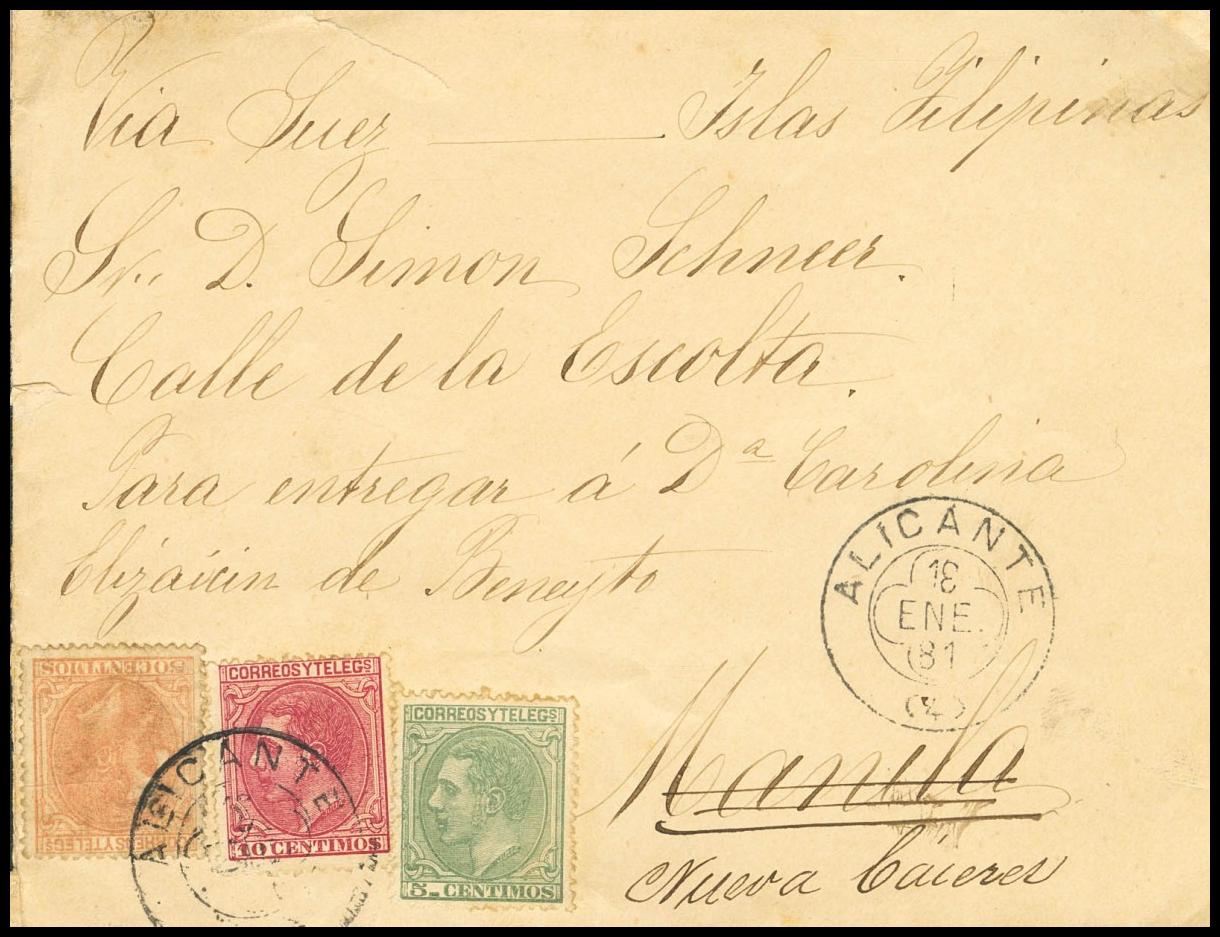 Via Suez — Islas Filipinas
Sr. D. Simon Schneer.
Calle de la Escolta.
Para entregar á Dª Carolina
Elizáicin de Beneyto
ALICANTE
18
ENE.
81
Manila
Nueva Caceres
50 CENTIMOS
CORREOS Y TELEGS
CORREOS Y TELEGS
10 CENTIMOS
CORREOS Y TELEGS
5 CENTIMOS
ALICANTE